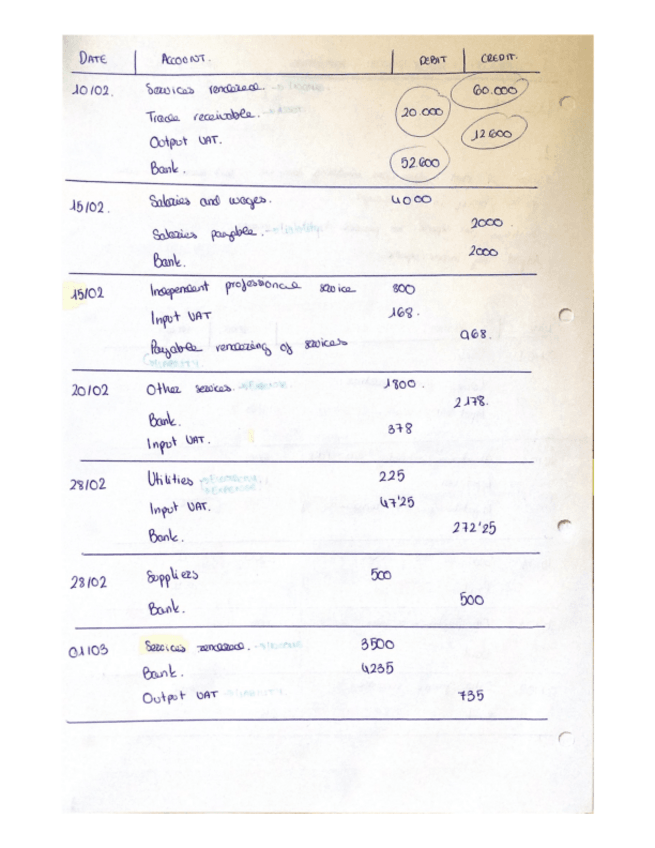 DATE ACCOUNT. DEBIT CREDIT.
10/02. Services rendered. → INCOME. 60.000
Trade receivable. → ASSET. 20.000
Output VAT. 12.600
Bank. 52.600
15/02. Salaries and wages. 4000
Salaries payable. → LIABILITY 2000.
Bank. 2000
15/02 Independent professional service 800
Input VAT 168.
Payable rendering of services 968.
LIABILITY.
20/02 Other services. → EXPENSE. 1800.
Bank. 2.178.
Input VAT. 378
28/02 Utilities → EXPENSE.
Input VAT. 47'25 225
Bank. 272'25
28/02 Suppliers 500
Bank. 500
01/03 Services rendered. → INCOME 3500
Bank. 4235
Output VAT → LIABILITY. 735